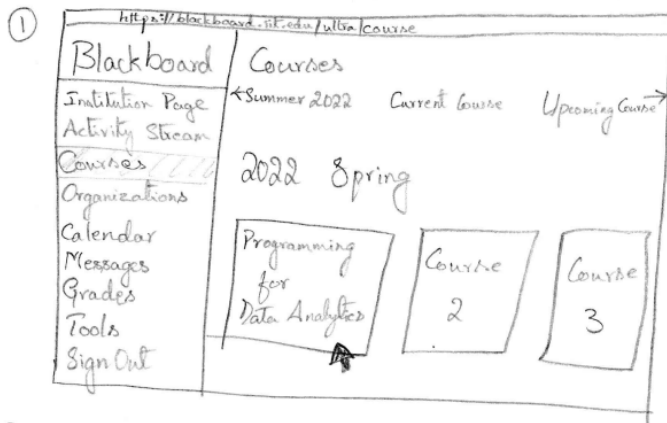 1
https://blackboard.iit.edu/ultra/course
Blackboard
Institution Page
Activity Stream
Courses
Organizations
Calendar
Messages
Grades
Tools
Sign Out
Courses
Summer 2022 Current Course Upcoming Course
2022 Spring
Programming
for
Data Analytics
Course
2
Course
3